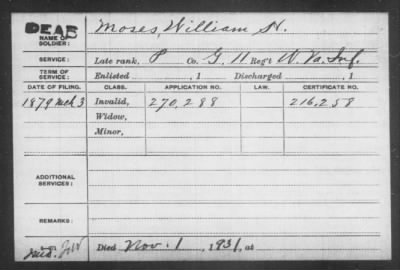 DEAD
NAME OF SOLDIER: Moses William H.
SERVICE: Late rank, P Co. G, 11 Reg't W. Va. Inf.
TERM OF SERVICE: Enlisted , 1 Discharged , 1
DATE OF FILING. CLASS. APPLICATION NO. LAW. CERTIFICATE NO.
1879 Mch 3 Invalid, 270,288 216,258
Widow,
Minor,
ADDITIONAL SERVICES:
REMARKS:
Died Nov. 1, 1931, at